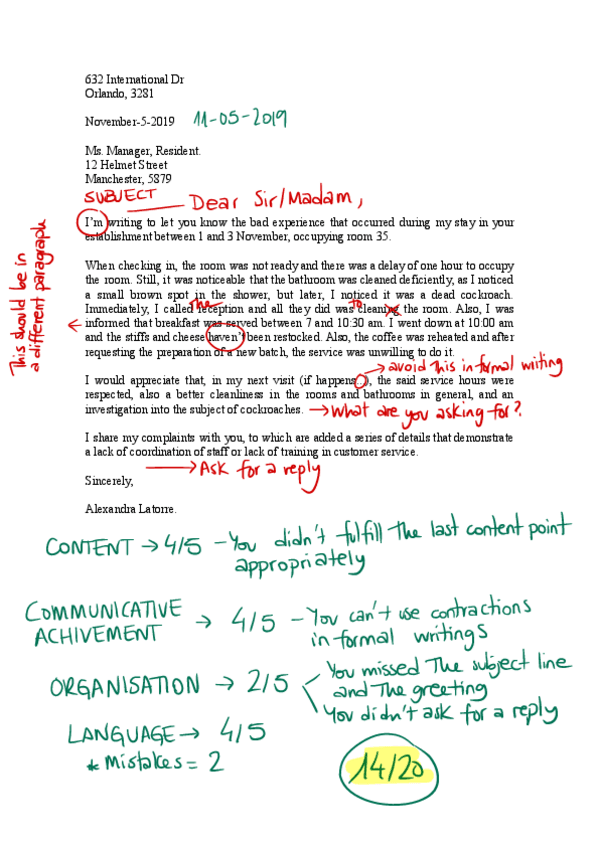 632 International Dr
Orlando, 3281
November-5-2019 11-05-2019
Ms. Manager, Resident.
12 Helmet Street
Manchester, 5879
SUBJECT Dear Sir/Madam,
I'm writing to let you know the bad experience that occurred during my stay in your
establishment between 1 and 3 November, occupying room 35.
When checking in, the room was not ready and there was a delay of one hour to occupy
the room. Still, it was noticeable that the bathroom was cleaned deficiently, as I noticed
a small brown spot in the shower, but later, I noticed it was a dead cockroach.
the to
Immediately, I called reception and all they did was cleaning the room. Also, I was
informed that breakfast was served between 7 and 10:30 am. I went down at 10:00 am
and the stiffs and cheese haven't been restocked. Also, the coffee was reheated and after
requesting the preparation of a new batch, the service was unwilling to do it.
This should be in
a different paragraph
avoid this in formal writing
I would appreciate that, in my next visit (if happens...), the said service hours were
respected, also a better cleanliness in the rooms and bathrooms in general, and an
investigation into the subject of cockroaches. What are you asking for?
I share my complaints with you, to which are added a series of details that demonstrate
a lack of coordination of staff or lack of training in customer service.
Ask for a reply
Sincerely,
Alexandra Latorre.
CONTENT → 4/5 - You didn't fulfill the last content point
appropriately
COMMUNICATIVE
ACHIVEMENT → 4/5 - You can't use contractions
in formal writings
ORGANISATION → 2/5 You missed the subject line
and the greeting
You didn't ask for a reply
LANGUAGE → 4/5
* Mistakes = 2
14/20